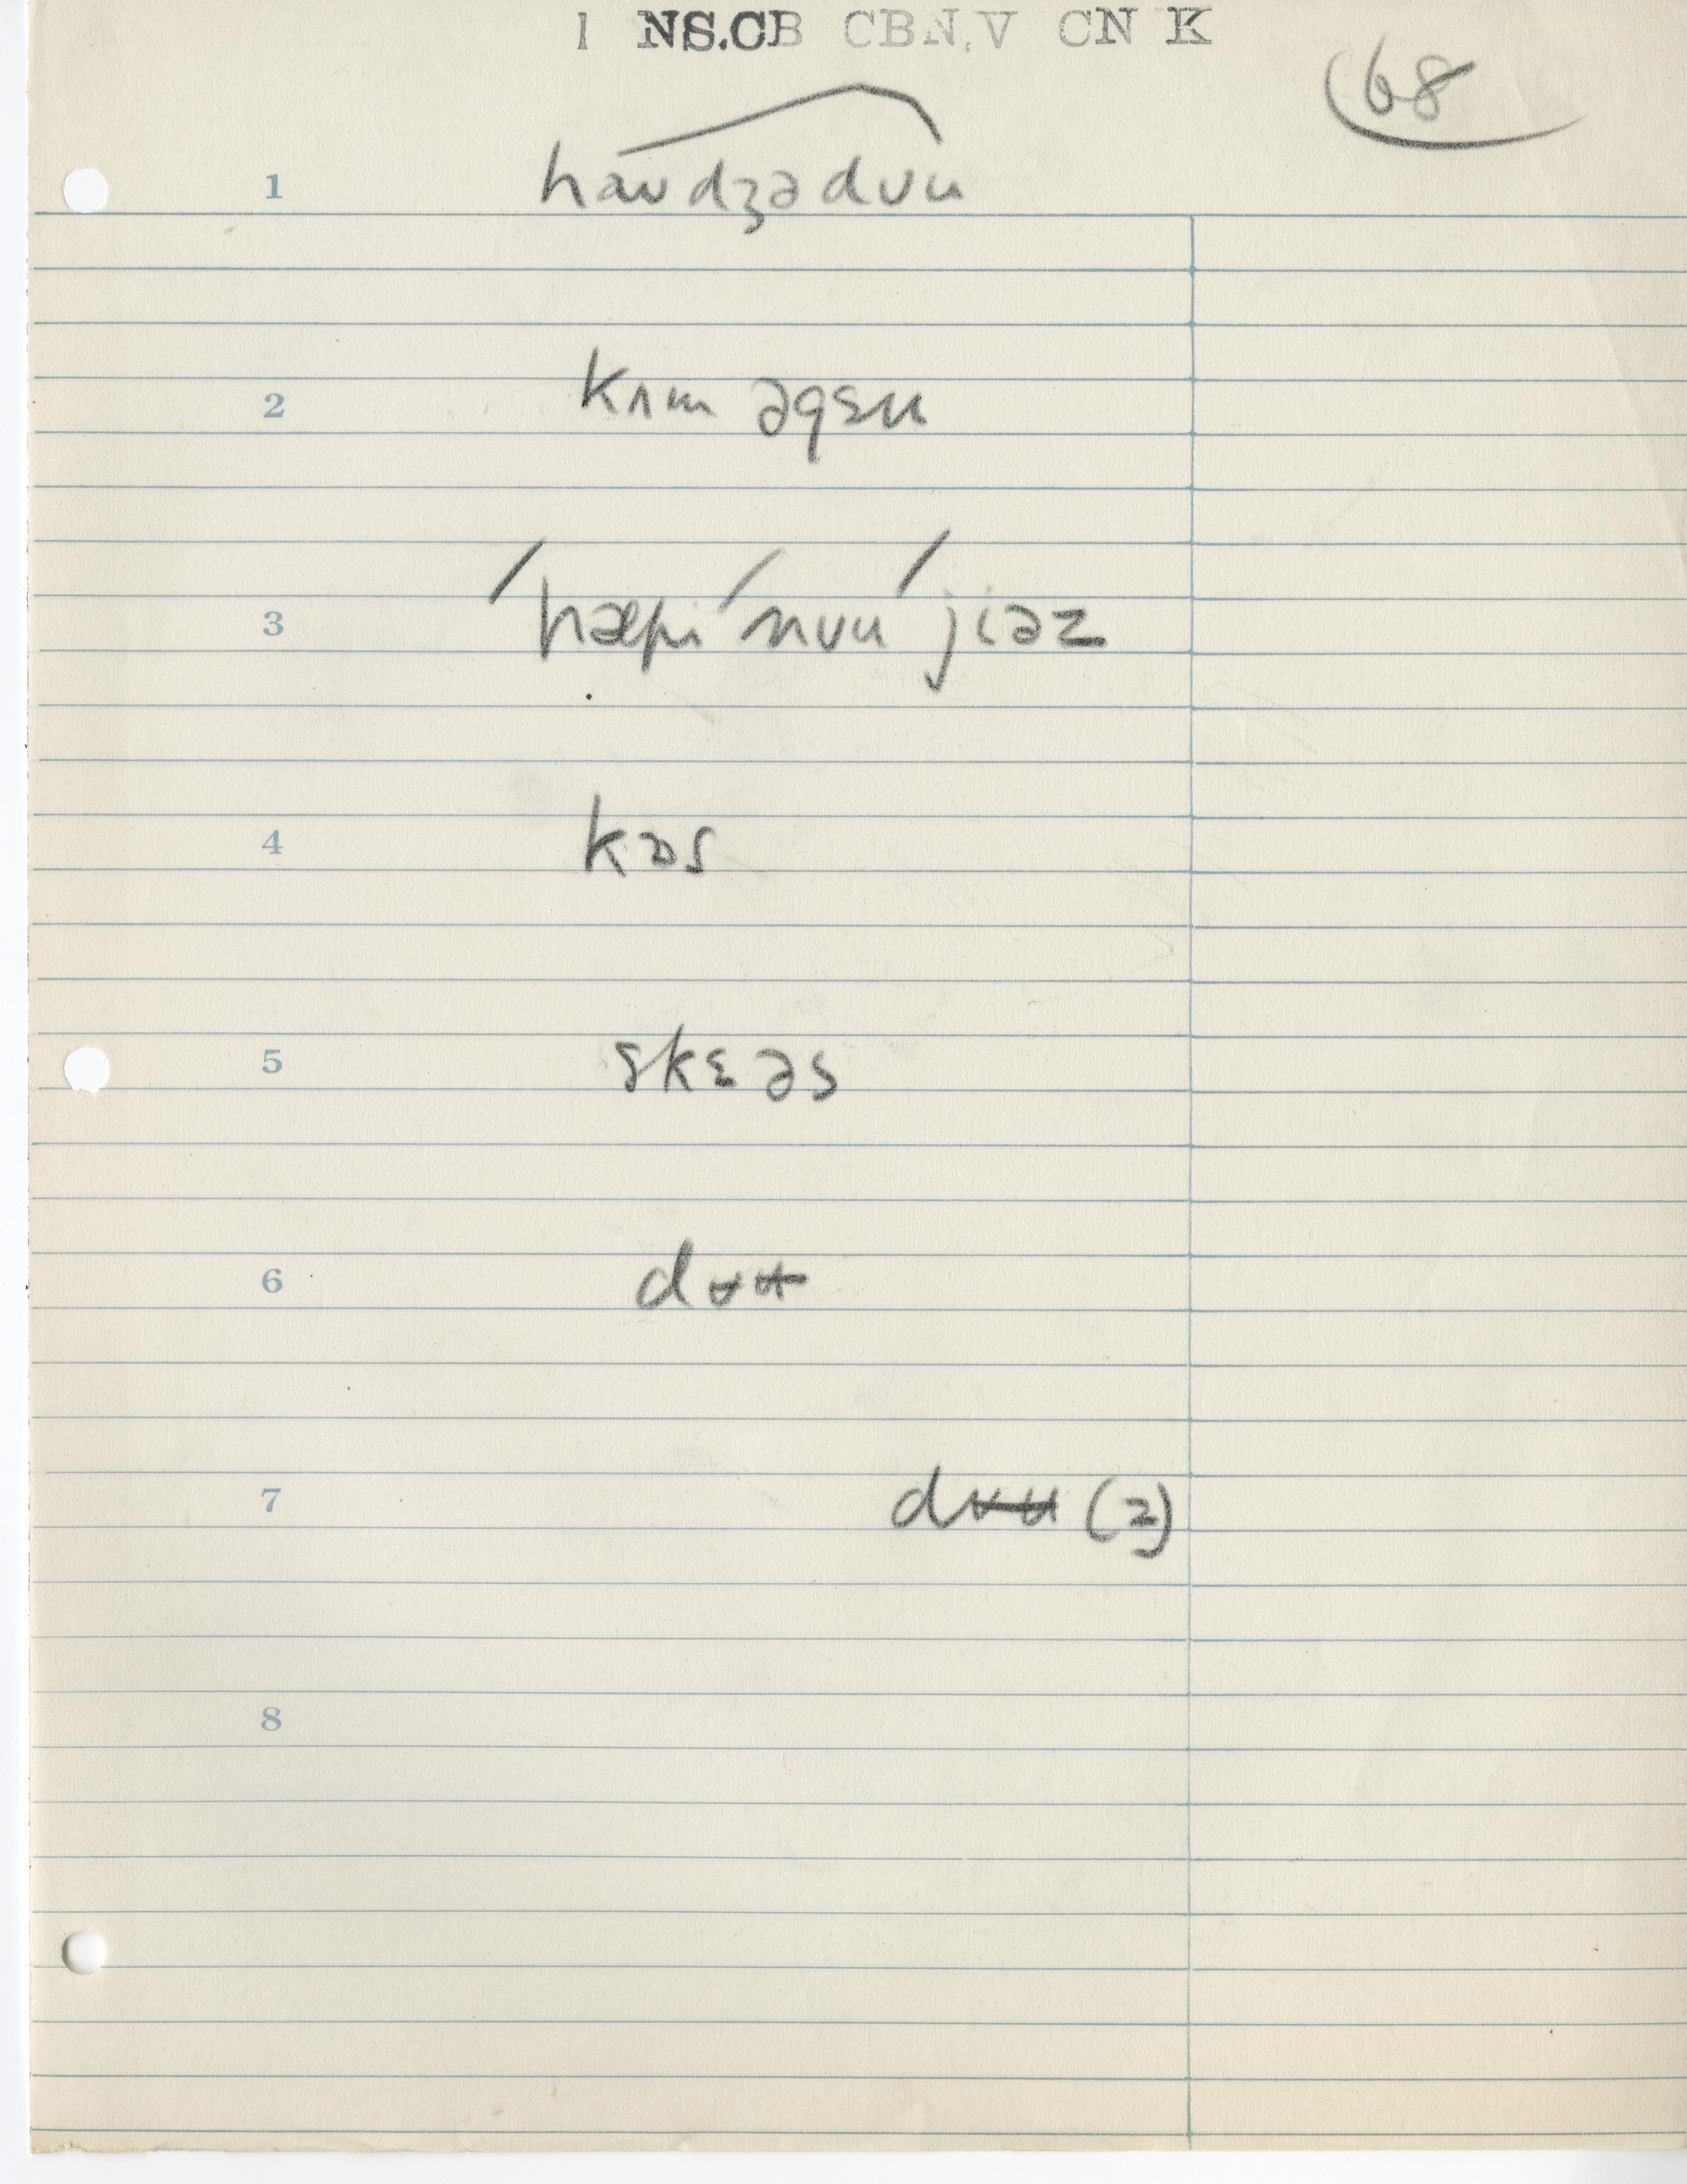 1 NS.CB CBN.V CN K
68
1 haʊdʒədʊu
2 kʌm əgɛn
3 ˈhæpi ˈnʊu ˈjiəz
4 kɔs
5 skɛəs
6 dʉʉ
7 dʉʉ (z)
8